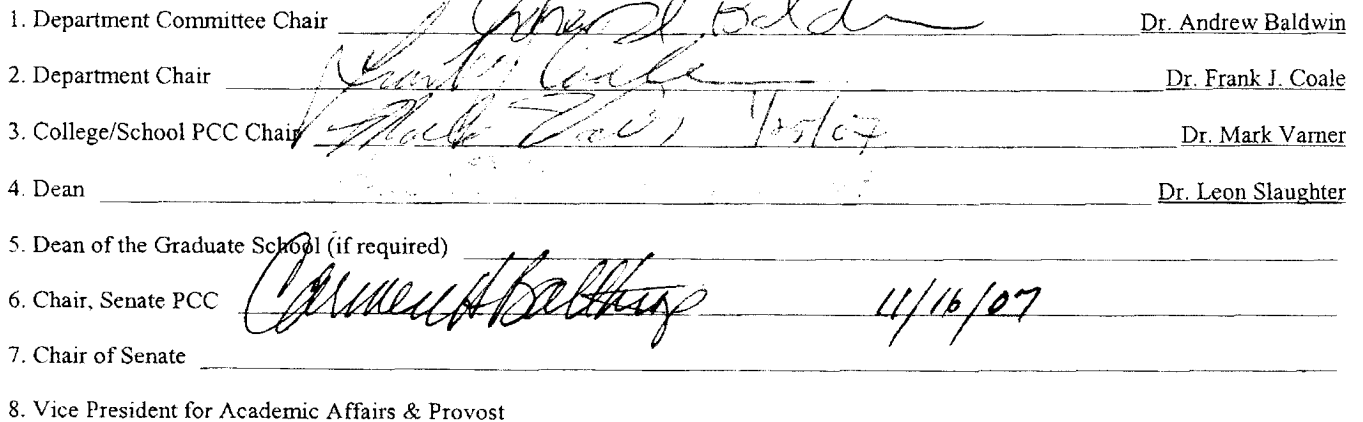 1. Department Committee Chair Baldwin Dr. Andrew Baldwin
2. Department Chair Frank J. Coale Dr. Frank J. Coale
3. College/School PCC Chair Mark 1/25/07 Dr. Mark Varner
4. Dean Dr. Leon Slaughter
5. Dean of the Graduate School (if required)
6. Chair, Senate PCC Carmen Balthrop 11/16/07
7. Chair of Senate
8. Vice President for Academic Affairs & Provost